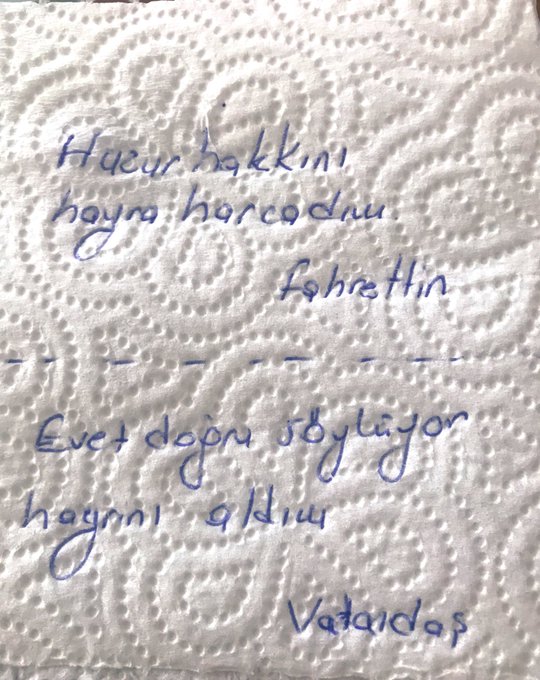 Huzur hakkını
hayra harcadım.
Fahrettin
Evet doğru söylüyor
hayrını aldım
Vatandaş